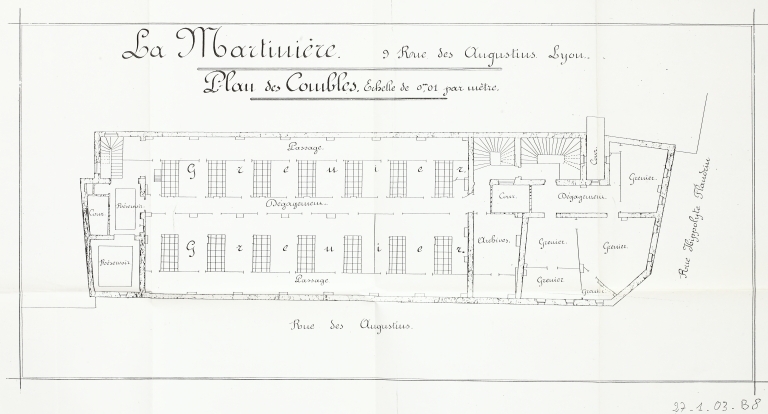 La Martinière. 9 Rue des Augustins Lyon.
Plan des Combles. Echelle de 0,01 par mètre.
Passage
Grenier
Cour
Grenier.
Dégagement
Cour
Réservoir
Dégagement
Cour
Rue Hippolyte Flandrin
Grenier.
Archives.
Grenier
Grenier.
Réservoir
Passage
Grenier
Grenier
Rue des Augustins.
27-1-03-B8